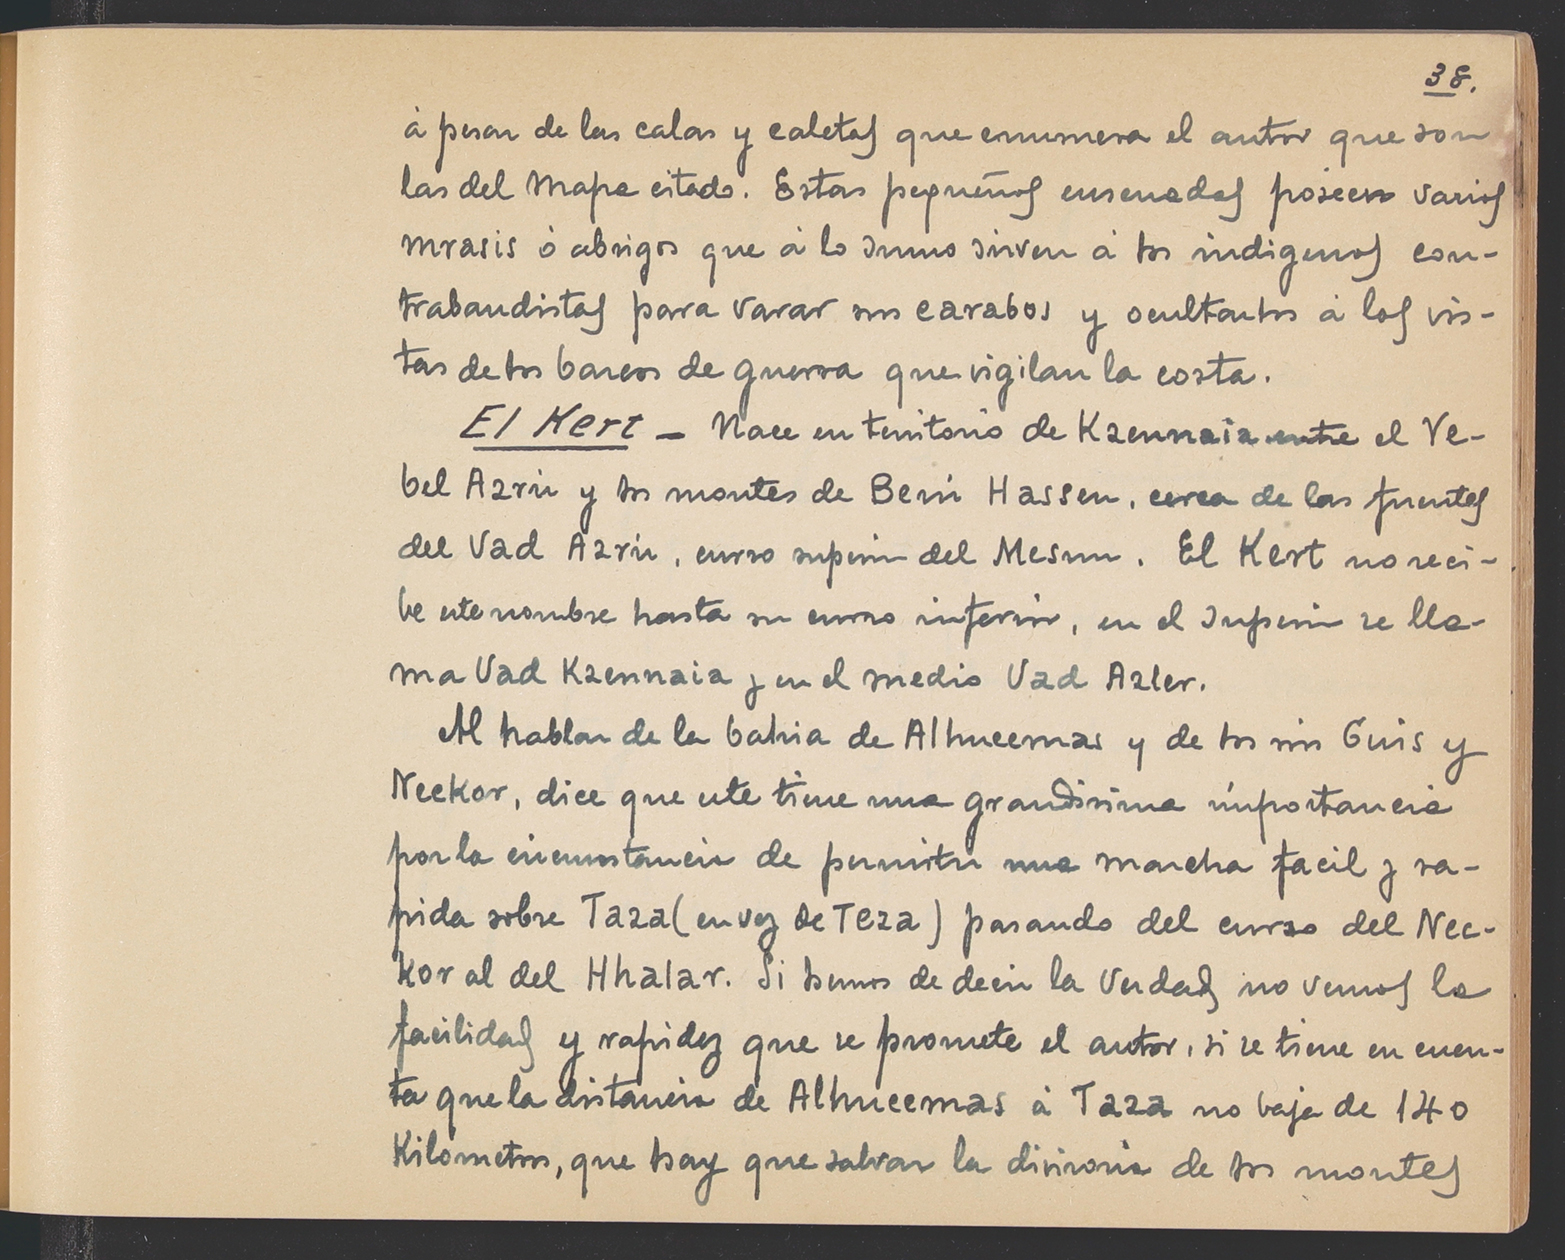 38.
á pesar de las calas y caletas que enumera el autor que son
las del Mapa citado. Estas pequeñas ensenadas poseen varios
mrasis ó abrigos que á lo sumo sirven á los indigenas con-
trabandistas para varar sus carabos y ocultarlos á las vis-
tas de los barcos de guerra que vigilan la costa.
El Kert – Nace en territorio de Kzennaia entre el Ye-
bel Azrú y los montes de Beni Hassen, cerca de las fuentes
del Vad Azrú, curso superior del Mesun. El Kert no reci-
be este nombre hasta su curso inferior, en el superior se lla-
ma Vad Kzennaia y en el medio Vad Azler.
Al hablar de la bahia de Alhucemas y de los rios Guis y
Neckor, dice que este tiene una grandisima importancia
por la circunstancia de permitir una marcha facil y ra-
pida sobre Taza (en vez de Teza) pasando del curso del Nec-
kor al del Hhalar. Si hemos de decir la verdad no vemos la
facilidad y rapidez que se promete el autor, si se tiene en cuen-
ta que la distancia de Alhucemas á Taza no baja de 140
Kilometros, que hay que salvar la divisoria de los montes